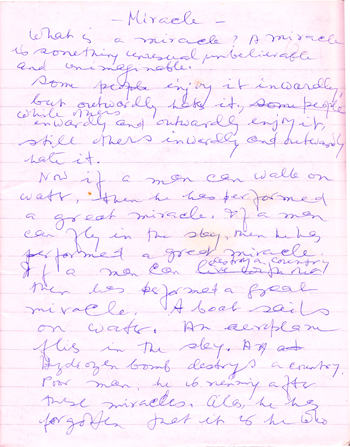 - Miracle -
What is a miracle? A miracle
is something unusual unbelievable
and unimaginable.
Some people enjoy it inwardly,
but outwardly hate it, some people
while others
inwardly and outwardly enjoy it,
still others inwardly and outwardly
hate it.
Now if a man can walk on
water, then he has performed
a great miracle. If a man
can fly in the sky, then he has
performed a great miracle.
If a man can destroy a country
then he has performed a great
miracle. A boat sails
on water. An aeroplane
flies in the sky. A
Hydrogen bomb destroys a country.
Poor man, he is running after
these miracles. Alas, he has
forgotten that it is he who